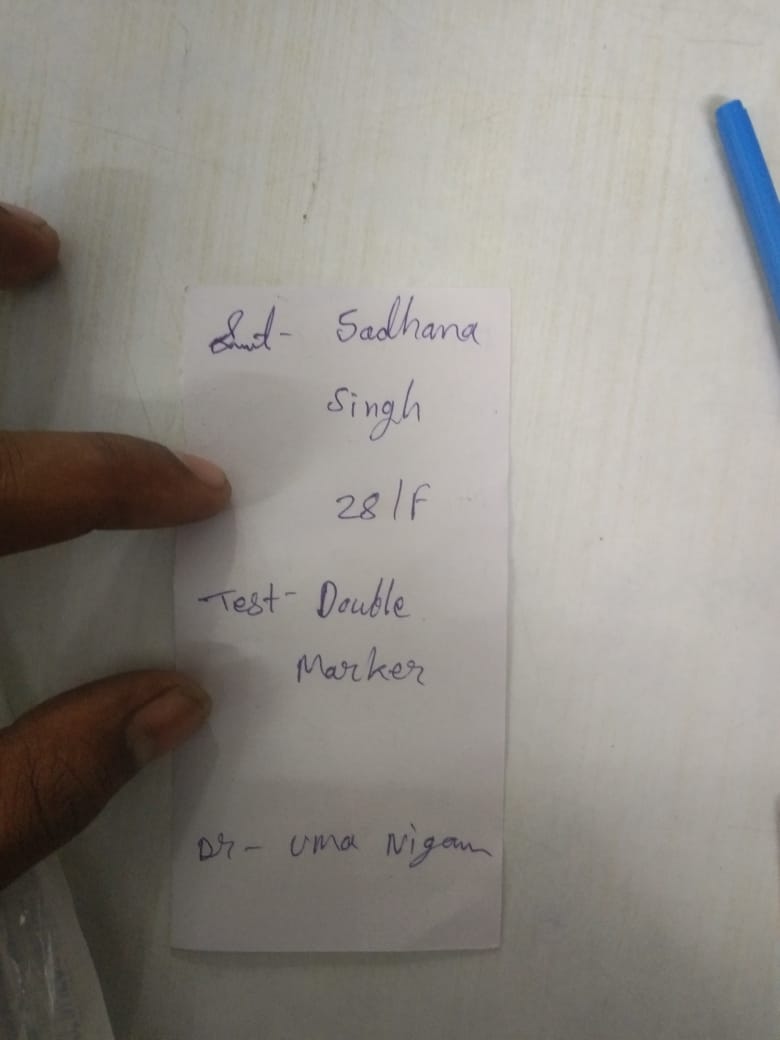 Smt- Sadhana
Singh
28/F
Test- Double
Marker
Dr- Uma Nigam